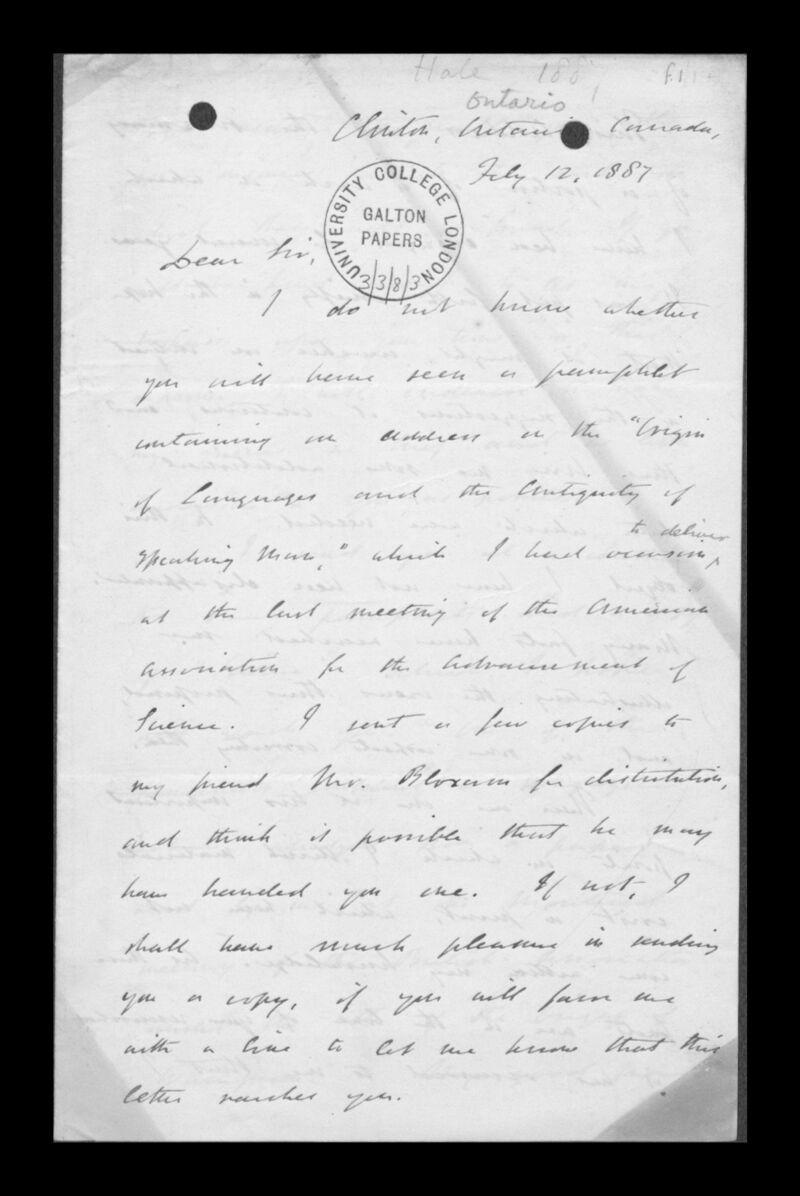 Hale 1887 f.1
Ontario
Clinton, Ontario Canada,
July 12, 1887
UNIVERSITY COLLEGE LONDON
GALTON
PAPERS
3/3/8/3
Dear Sir,
I do not know whether
you will have seen a pamphlet
containing an address on the "Origin
of Languages and the Antiquity of
to deliver
Speaking Man," which I had occasion,
at the last meeting of the American
Association for the Advancement of
Science. I sent a few copies to
my friend Mr. Bloxam for distribution,
and think it possible that he may
have handed you one. If not, I
shall have much pleasure in sending
you a copy, if you will favor me
with a line to let me know that this
letter reaches you.